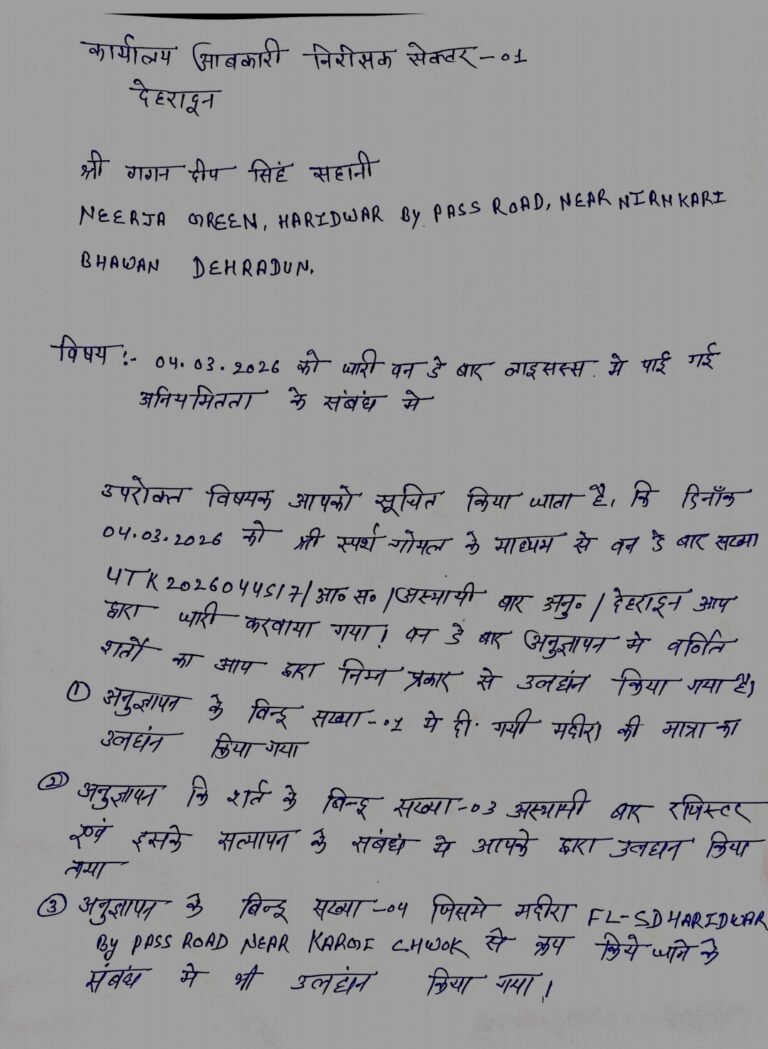 कार्यालय आबकारी निरीक्षक सेक्टर -01
देहरादून
श्री गगन दीप सिहं सहानी
NEERJA GREEN, HARIDWAR By PASS ROAD, NEAR NIRNKARI
BHAWAN DEHRADUN.
विषय :- 04.03.2026 को जारी वन डे बार लाइसेन्स मे पाई गई
अनियमितता के संबंध मे
उपरोक्त विषयक आपको सूचित किया जाता है, कि दिनाँक
04.03.2026 को श्री स्पर्थ गोयल के माध्यम से वन डे बार सख्या
UTK2026044517/आ० स० /अस्थायी बार अनु० / देहरादून आप
द्वारा जारी करवाया गया। वन डे बार अनुज्ञापन मे वर्णित
शर्तो का आप द्वारा निम्न प्रकार से उलघंन किया गया है।
① अनुज्ञापन के विन्दू सख्या -01 मे दी गयी मदीरा की मात्रा का
उलघंन किया गया
② अनुज्ञापन कि शर्त के बिन्दू सख्या -03 अस्थामी बार रजिस्टर
एवं इसके सत्यापन के संबंध मे आपके द्वारा उलघन किया
गया
③ अनुज्ञापन के बिन्दू सख्या -04 जिसमे मदीरा FL-5D HARIDWAR
By PASS ROAD NEAR KARGI CHWOK से क्रय किये जाने के
संबंध मे भी उलघंन किया गया।